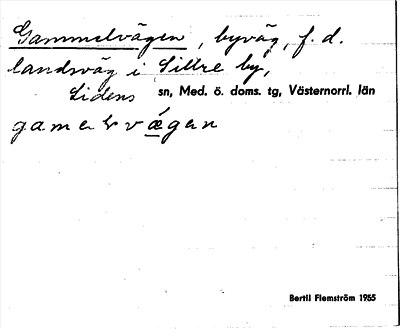 Gammelvägen, byväg, f.d.
landsväg i Sillre by,
Lidens sn, Med. ö. doms. tg, Västernorrl. län
Bertil Flemström 1965